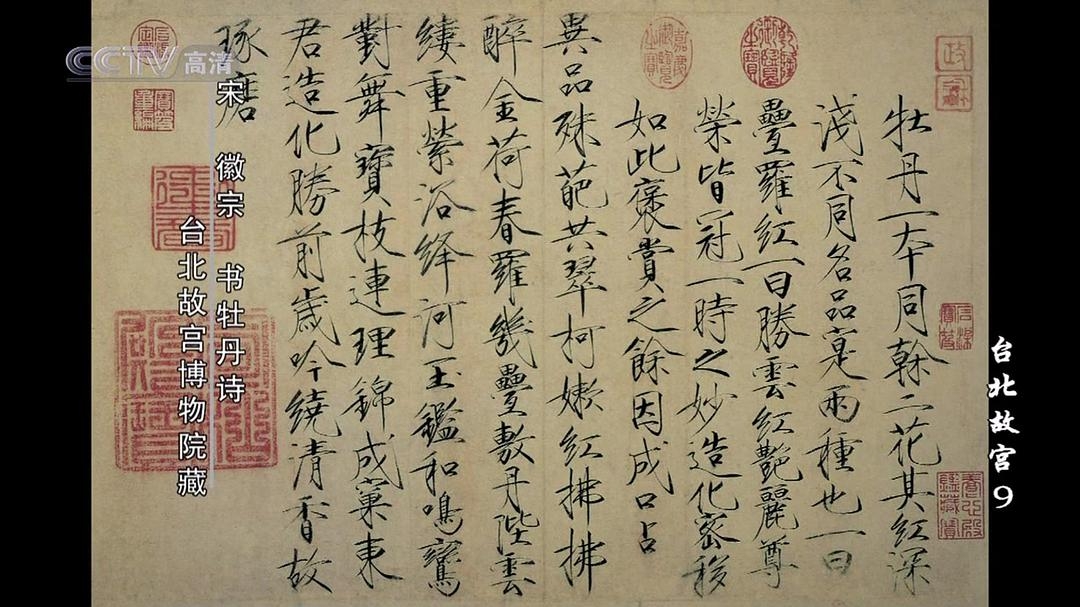 CCTV高清
台北故宫9
牡丹一本同榦二花其紅深
淺不同名品寔兩種也一曰
疊羅紅一曰勝雲紅艷麗尊
榮皆冠一時之妙造化密移
如此褒賞之餘因成口占
異品殊葩共翠柯嫩紅拂拂
醉金荷春羅幾疊敷丹陛雲
縷重縈浴絳河玉鑑和鳴鸞
對舞寶枝連理錦成窠東
君造化勝前歲吟繞清香故
琢磨
宋 徽宗 书牡丹诗
台北故宫博物院藏
乾隆御覽之寶
嘉慶御覽之寶